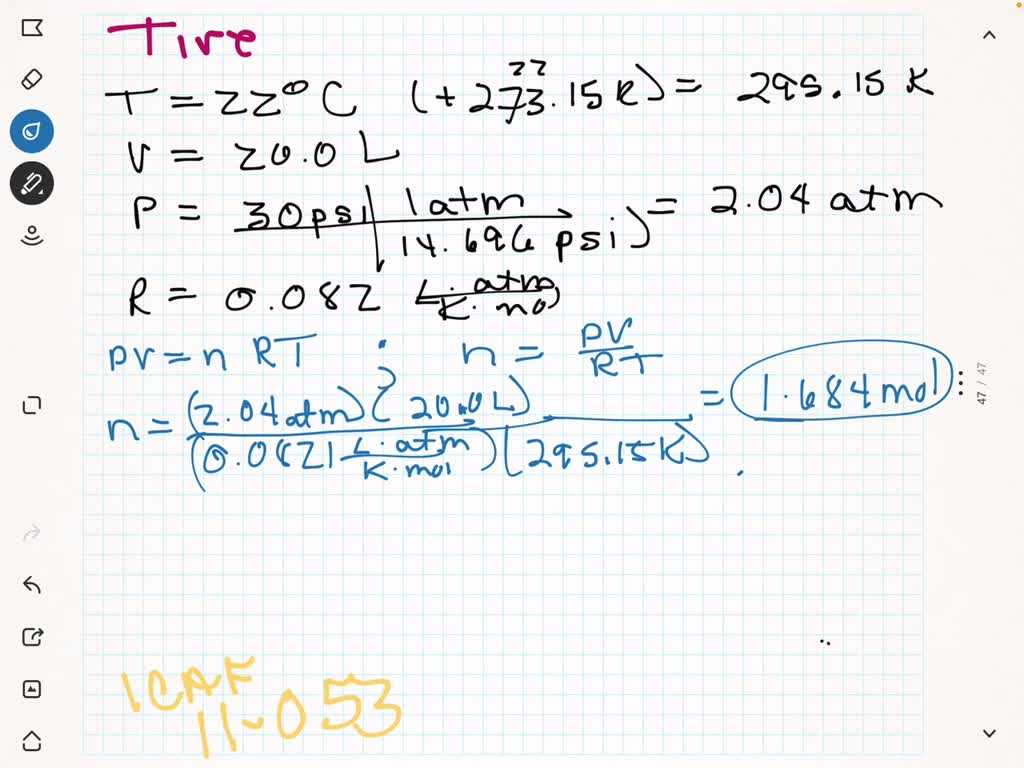 Tire
T = 22°C (+ 273.15 K) = 295.15 K
22
V = 20.0 L
P = 30 psi | 1 atm / 14.696 psi) = 2.04 atm
R = 0.082 L·atm / K·mol
PV = n RT ; n = PV / RT
n = (2.04 atm)(20.0 L) / (0.0821 L·atm / K·mol)(295.15 K) = 1.684 mol
47 / 47
11-053